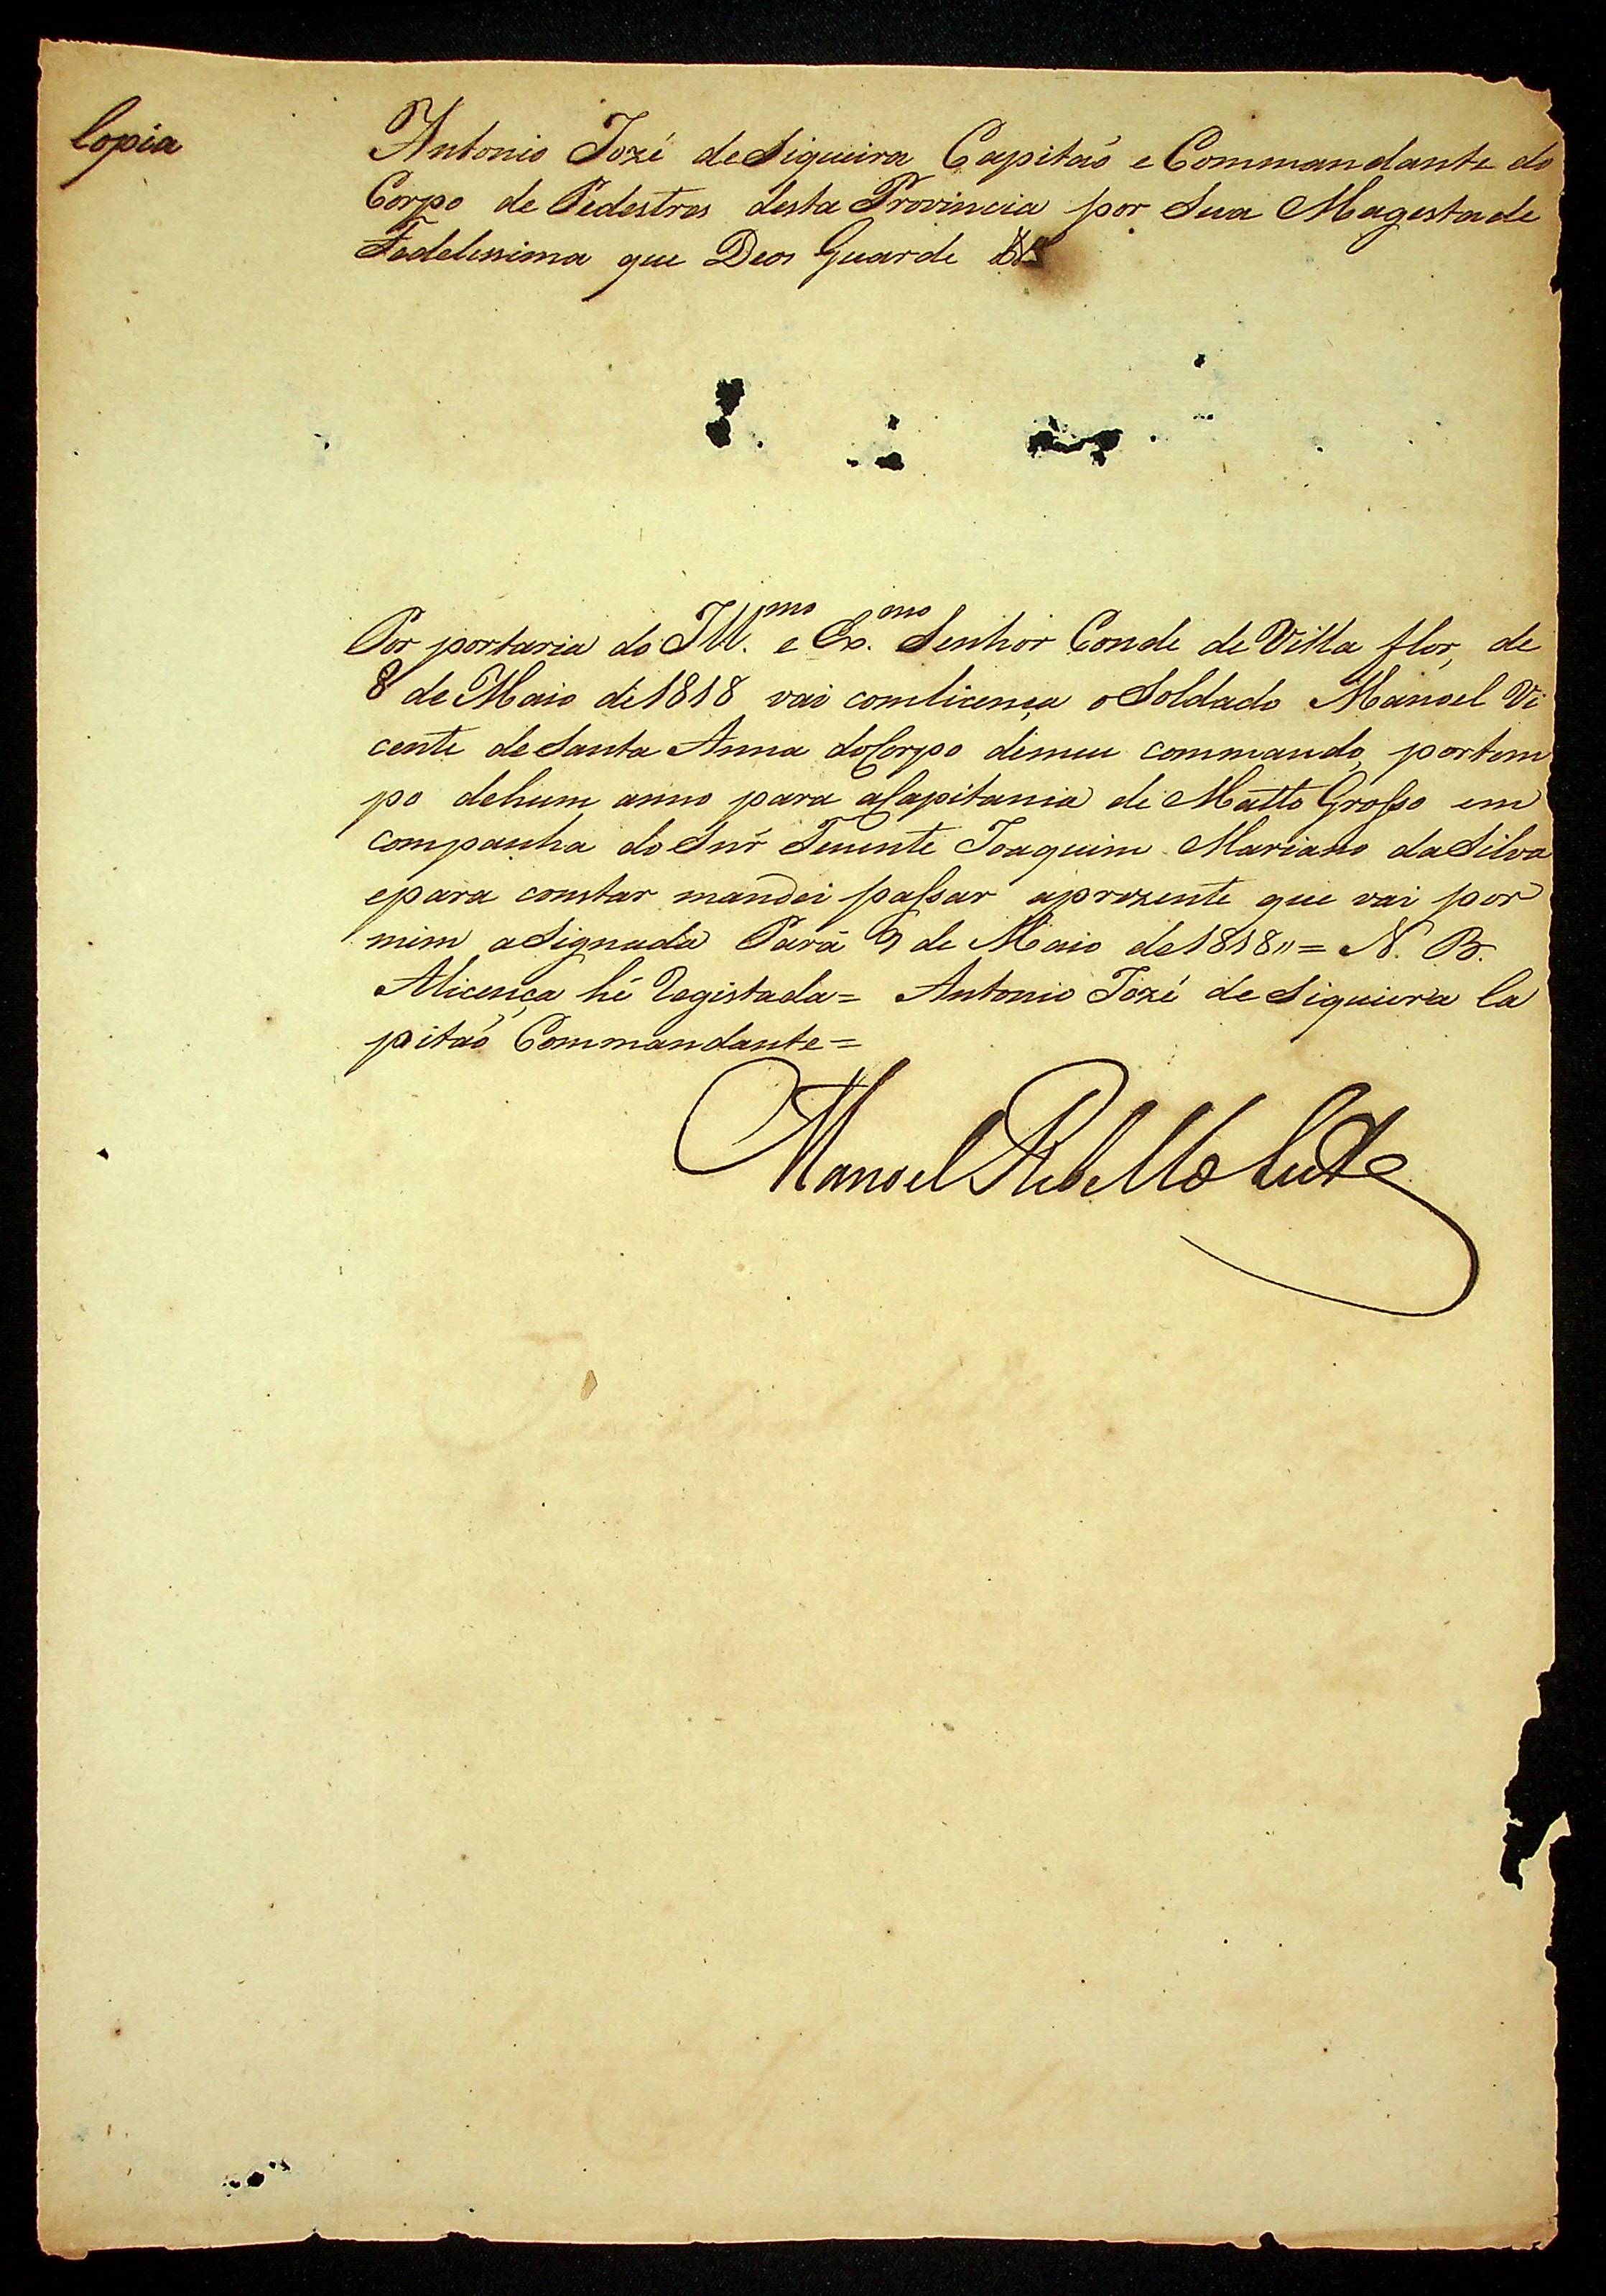 Copia
Antonio Jozé deSiqueira Capitaõ e Commandante do
Corpo de Pedestres desta Provincia por Sua Magestade
Fedelissima que Deos Guarde
Por portaria do Ill.mo e Ex.mo Senhor Conde de Villa flor, de
8 de Maio de 1818 vai comlicença oSoldado Manoel Vi
cente deSanta Anna doCorpo demeu commando, portem
po dehum anno para aCapitania de Matto Grosso em
companha do Snr̃ Tenente Joaquim Mariano daSilva
epara constar mandei passar aprezente que vai por
mim aSignada Pará 9 de Maio de 1818„= N. B.
Alicença hé Registada= Antonio Jozé deSiqueira Ca
pitaõ Commandante=
Manoel Rebello